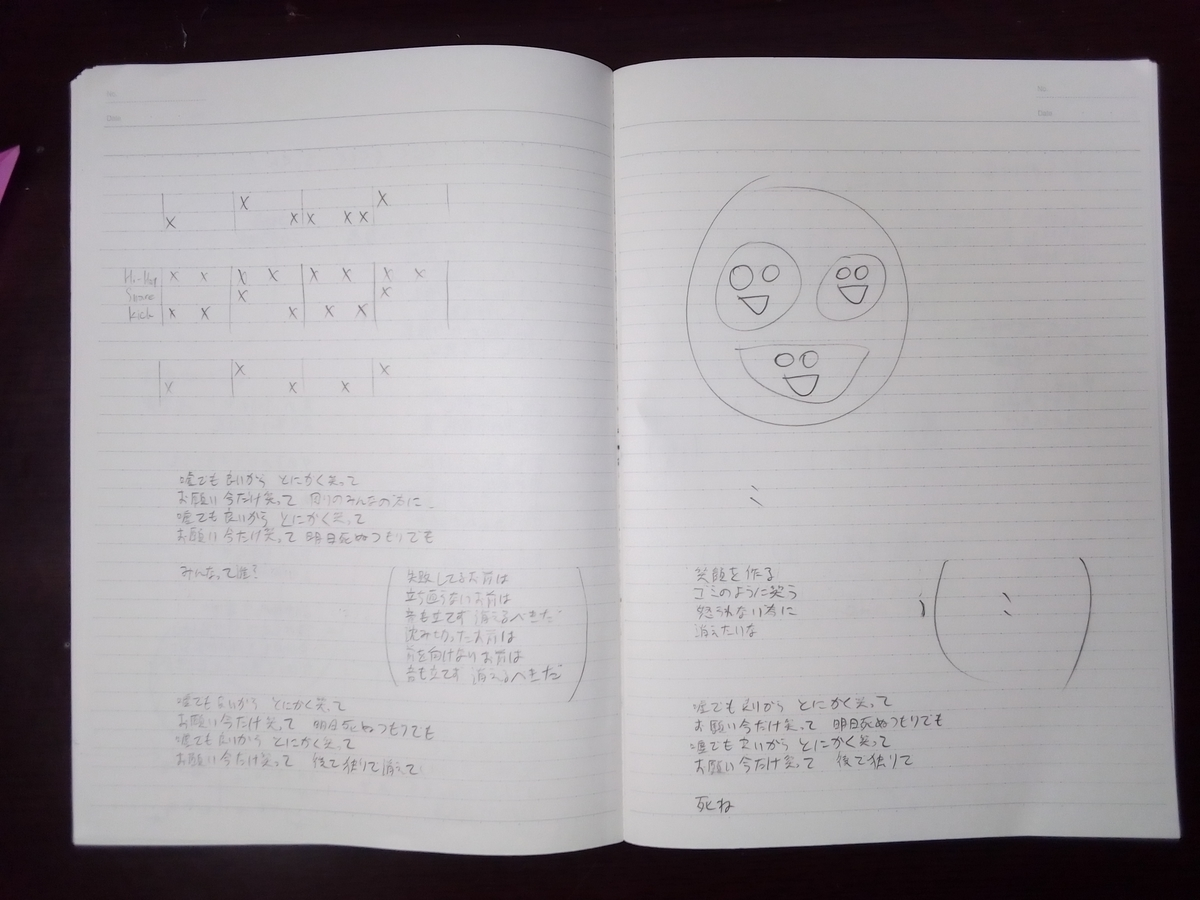 No.
Date
Hi-Hat
Snare
Kick
嘘でも良いから とにかく笑って
お願い今だけ笑って 回りのみんなの為に
嘘でも良いから とにかく笑って
お願い今だけ笑って 明日死ぬつもりでも
みんなって誰?
失敗してるお前は
立ち直らないお前は
音も立てず 消えるべきだ
沈み切ったお前は
前を向けないお前は
音も立てず 消えるべきだ
嘘でも良いから とにかく笑って
お願い今だけ笑って 明日死ぬつもりでも
嘘でも良いから とにかく笑って
お願い今だけ笑って 後で独りで消えて
No.
Date
笑顔を作る
ゴミのように笑う
怒られない為に
消えたいな
嘘でも良いから とにかく笑って
お願い今だけ笑って 明日死ぬつもりでも
嘘でも良いから とにかく笑って
お願い今だけ笑って 後で独りで
死ね